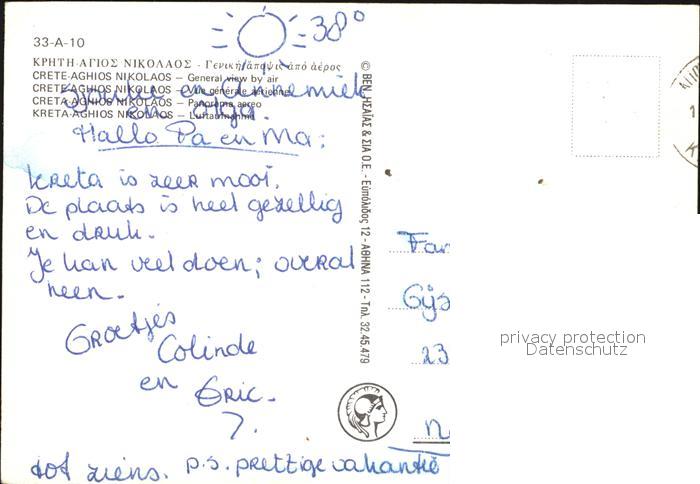 38°
33-A-10
ΚΡΗΤΗ-ΑΓΙΟΣ ΝΙΚΟΛΑΟΣ - Γενική ἄποψις ἀπό ἀέρος
CRETE-AGHIOS NIKOLAOS – General view by air
CRETE-AGHIOS NIKOLAOS – Vue générale aérienne
CRETA-AGHIOS NIKOLAOS – Panorama aereo
KRETA-AGHIOS NIKOLAOS – Luftaufnahme
en
Hallo Pa en Ma:
Kreta is zeer mooi.
De plaats is heel gezellig
en druk.
Je kan veel doen; overal
heen.
Groetjes
Colinde
en Eric.
7.
tot ziens. p.s. prettige vakantie
© ΒΕΝ. ΗΣΑΪΑΣ & ΣΙΑ Ο.Ε. - Ευπόλιδος 12 - ΑΘΗΝΑ 112 - Τηλ. 32.45.479
Fam
Gijs
23
N
privacy protection
Datenschutz